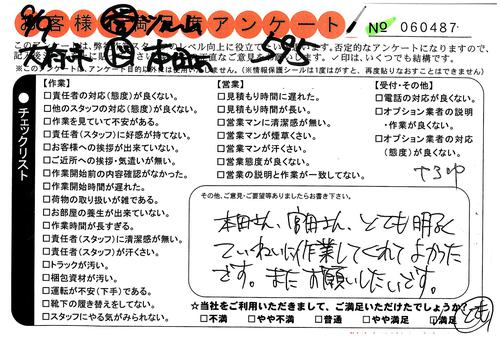 お客様満足度アンケート
№ 060487
【作業】
□責任者の対応(態度)が良くない。
□他のスタッフの対応(態度)が良くない。
□作業を見ていて不安がある。
□責任者(スタッフ)に好感が持てない。
□お客様への挨拶が出来ていない。
□ご近所への挨拶・気遣いが無い。
□作業開始前の内容確認がなかった。
□作業開始時間が遅れた。
□荷物の取り扱いが雑である。
□お部屋の養生が出来ていない。
□作業時間が長すぎる。
□責任者(スタッフ)に清潔感が無い。
□責任者(スタッフ)が汗くさい。
□トラックが汚い。
□梱包資材が汚い。
□運転が不安(下手)である。
□靴下の履き替えをしてない。
□スタッフにやる気がみられない。
●チェックリスト
【営業】
□見積もり時間に遅れた。
□見積もり時間が長い。
□営業マンに清潔感が無い。
□営業マンが煙草くさい。
□営業マンが汗くさい。
□営業態度が良くない。
□営業の説明と作業が一致してない。
【受付・その他】
□電話の対応が良くない。
□オプション業者の説明
・作業が良くない。
□オプション業者の対応
(態度)が良くない。
その他、ご意見・ご要望等ありましたらお書き下さい。
本田さん、官田さん、とても明るく
ていねいに作業してくれてよかった
です。またお願いしたいです。
☆当社をご利用いただきまして、ご満足いただけたでしょうか?
□不満 □やや不満 □普通 □やや満足 □満足
とても